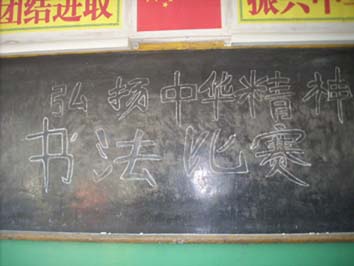 团结进取
振兴中
弘扬中华精神
书法比赛